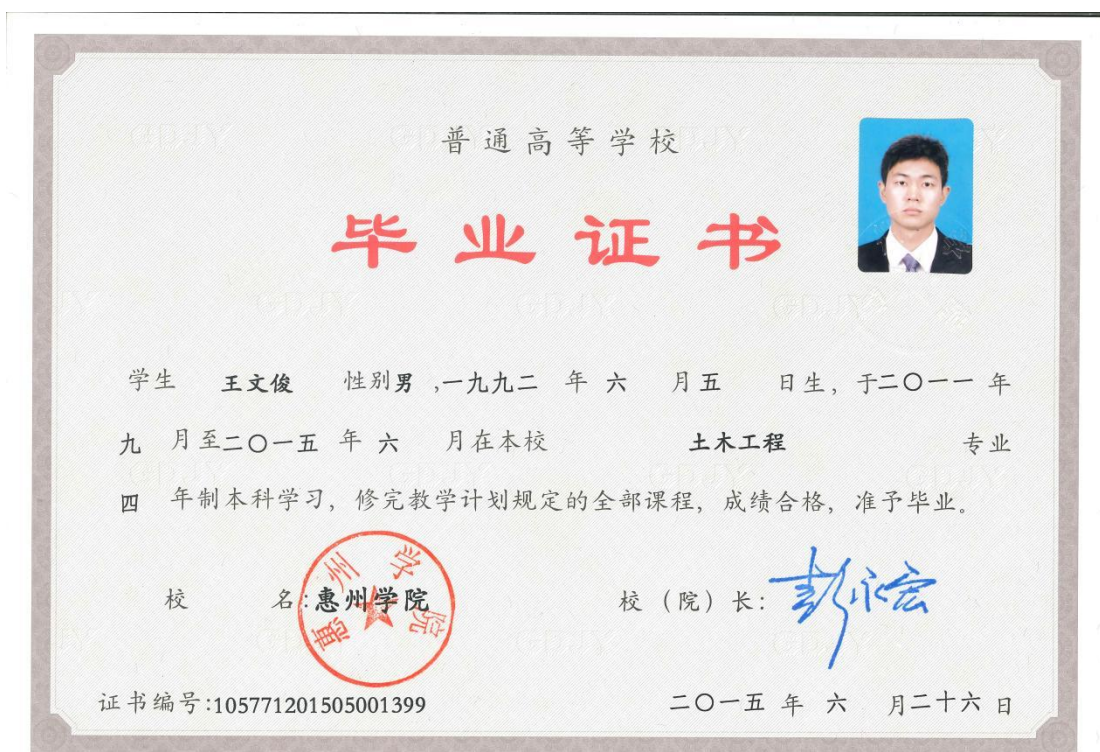 普通高等学校
毕业证书
学生 王文俊 性别男,一九九二 年 六 月五 日生, 于二〇一一 年
九 月至二〇一五 年 六 月在本校 土木工程 专业
四 年制本科学习, 修完教学计划规定的全部课程, 成绩合格, 准予毕业。
校 名:惠州学院
惠州学院
校(院)长: 彭永宏
证书编号:105771201505001399
二〇一五 年 六 月二十六日
GDJY